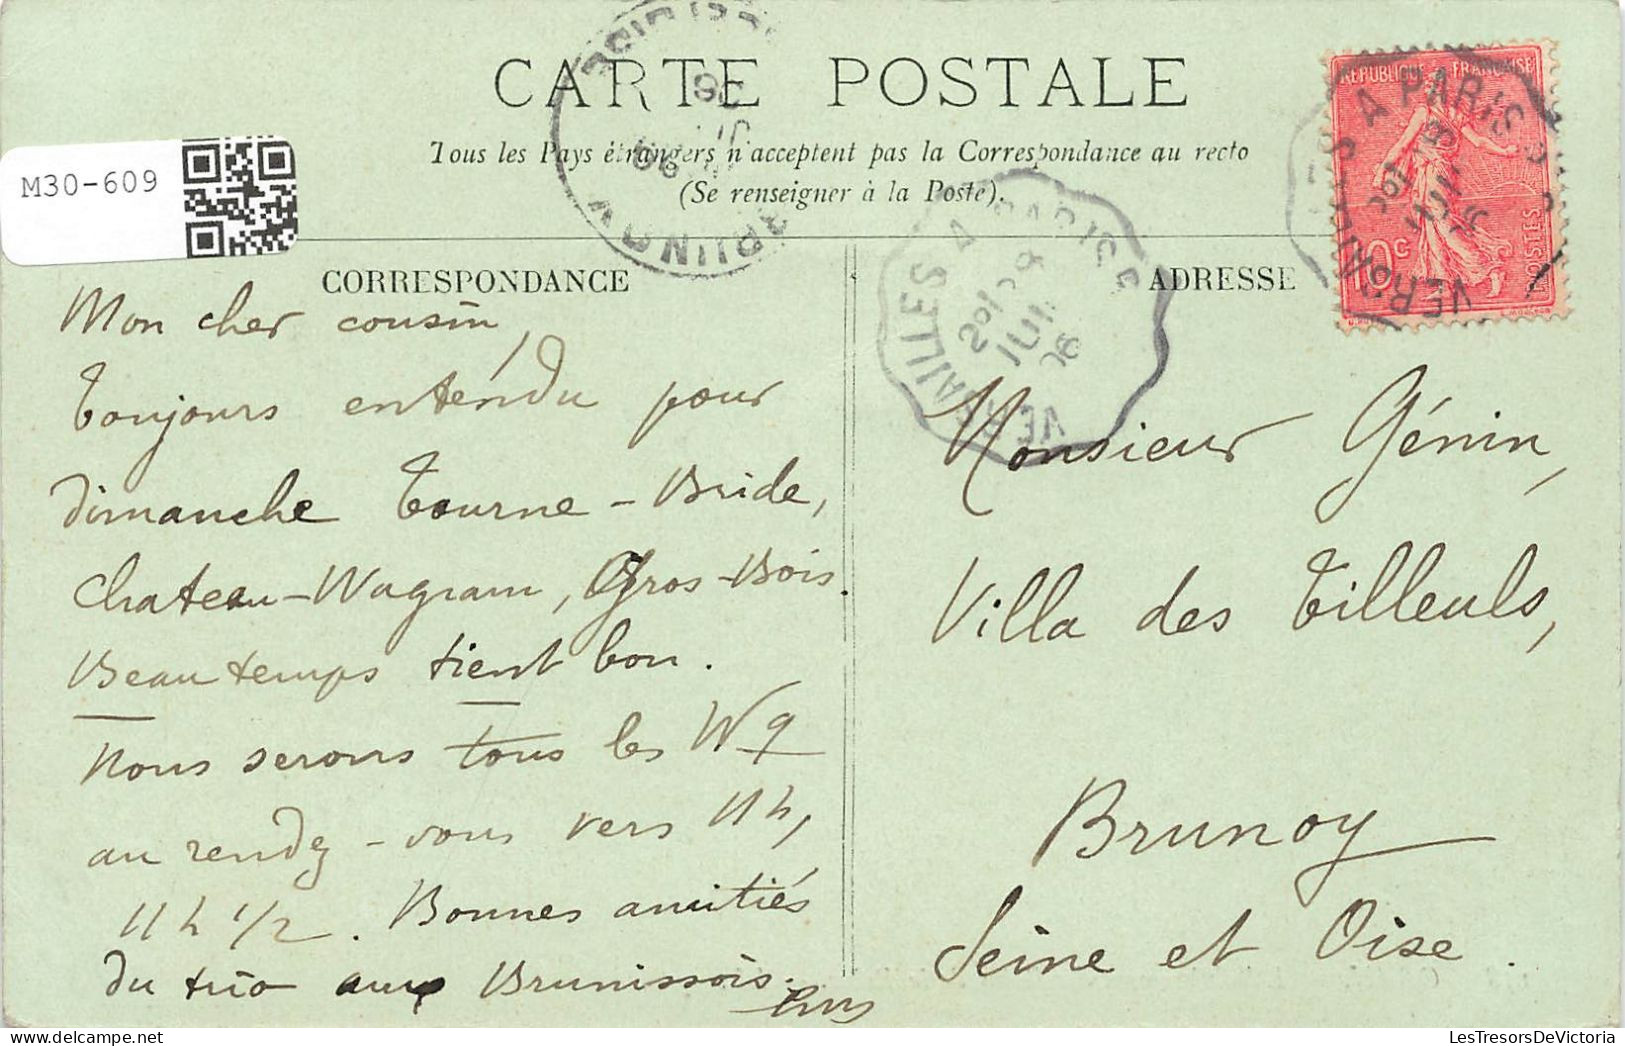 CARTE POSTALE
Tous les Pays étrangers n'acceptent pas la Correspondance au recto
(Se renseigner à la Poste).
M30-609
CORRESPONDANCE
Mon cher cousin,
Toujours entendu pour
dimanche Tourne-Bride,
Chateau-Wagram, Gros-Bois.
Beau temps tient bon.
Nous serons tous les W9
au rendez-vous vers 11h,
11h 1/2. Bonnes amitiés
du trio aux Brunissois.
ADRESSE
Monsieur Génin,
Villa des Tilleuls,
Brunoy
Seine et Oise.
REPUBLIQUE FRANÇAISE
10c
POSTES
VERSAILLES A PARIS
JUIN
06
VERSAILLES A PARIS
JUIN
06
BRUNOY
LesTresorsDeVictoria